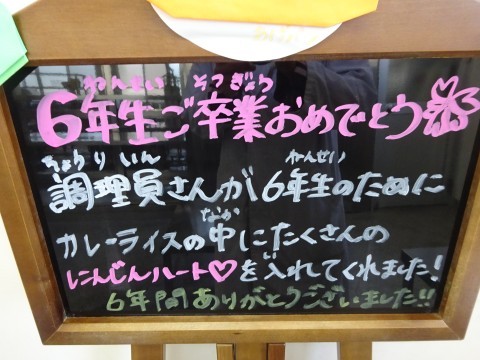 ねんせい そつぎょう
6年生ご卒業おめでとう
ちょうりいん ねんせい
調理員さんが6年生のために
なか
カレーライスの中にたくさんの
にんじんハート♡を入れてくれました!
6年間ありがとうございました!!